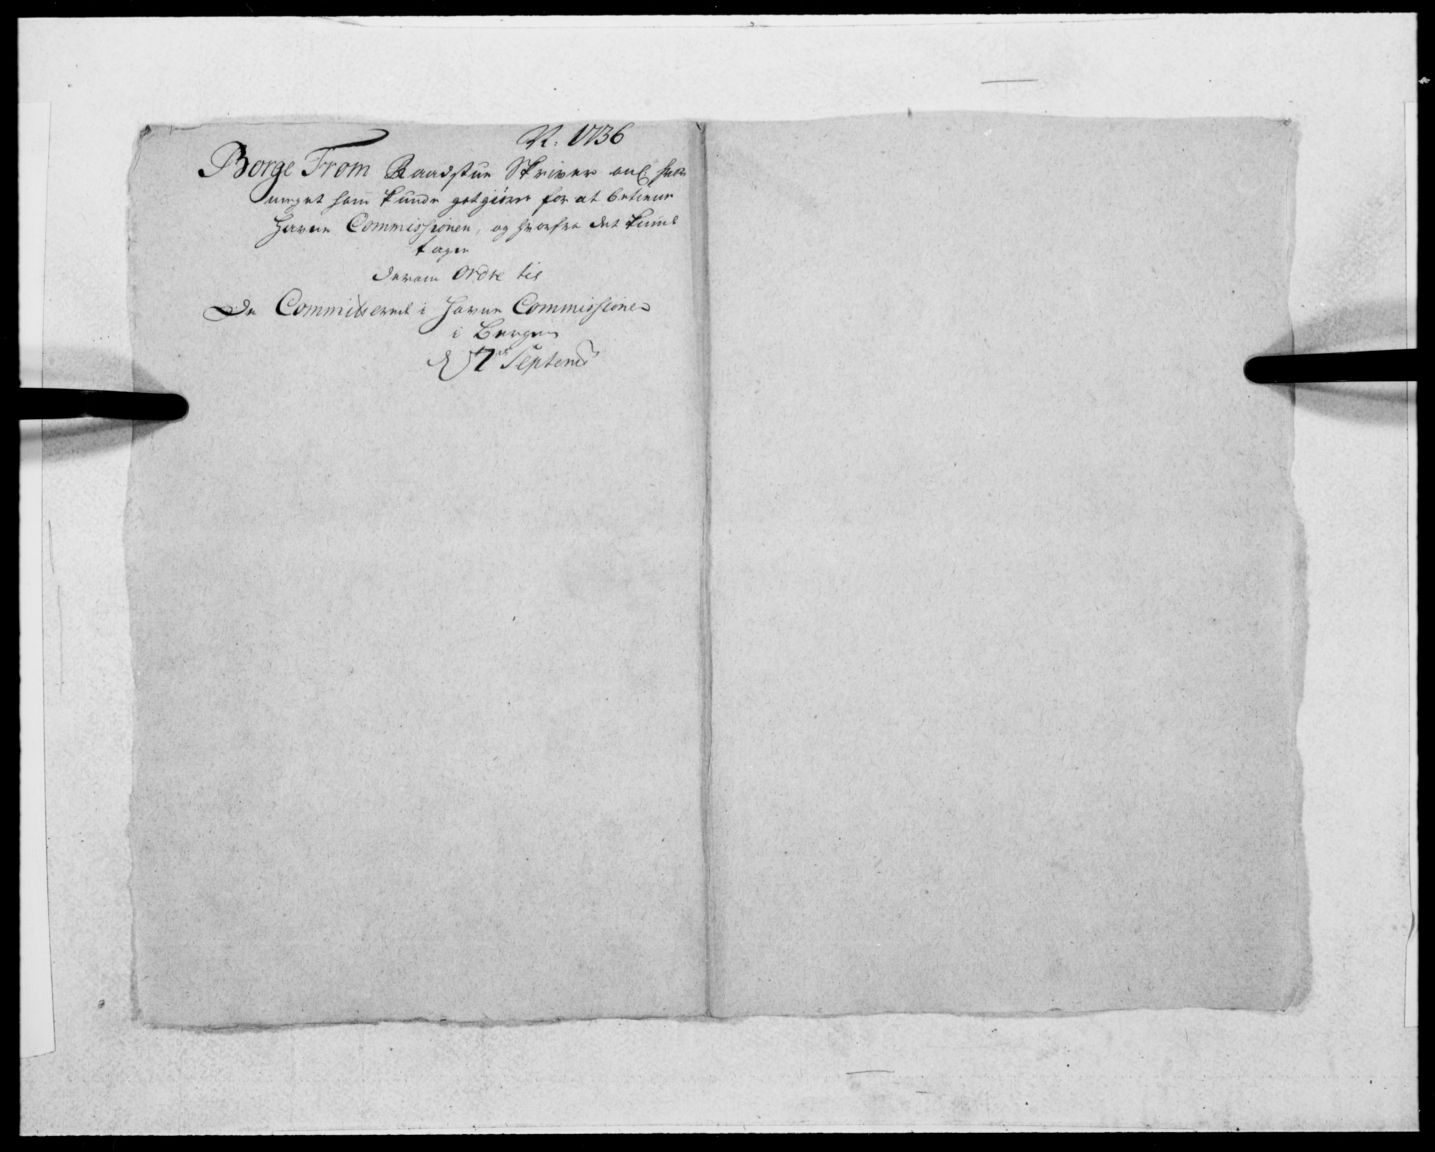 N: 1736
Borge From Raadstue Skriver anl: hvor
meget ham kunde godgiøres for at betiene
Havne Commissionen, og hvorfra det kunde
tages
Derom Ordre til
De Committerede i Havne Commissionen
i Bergen
d 7 Septembr